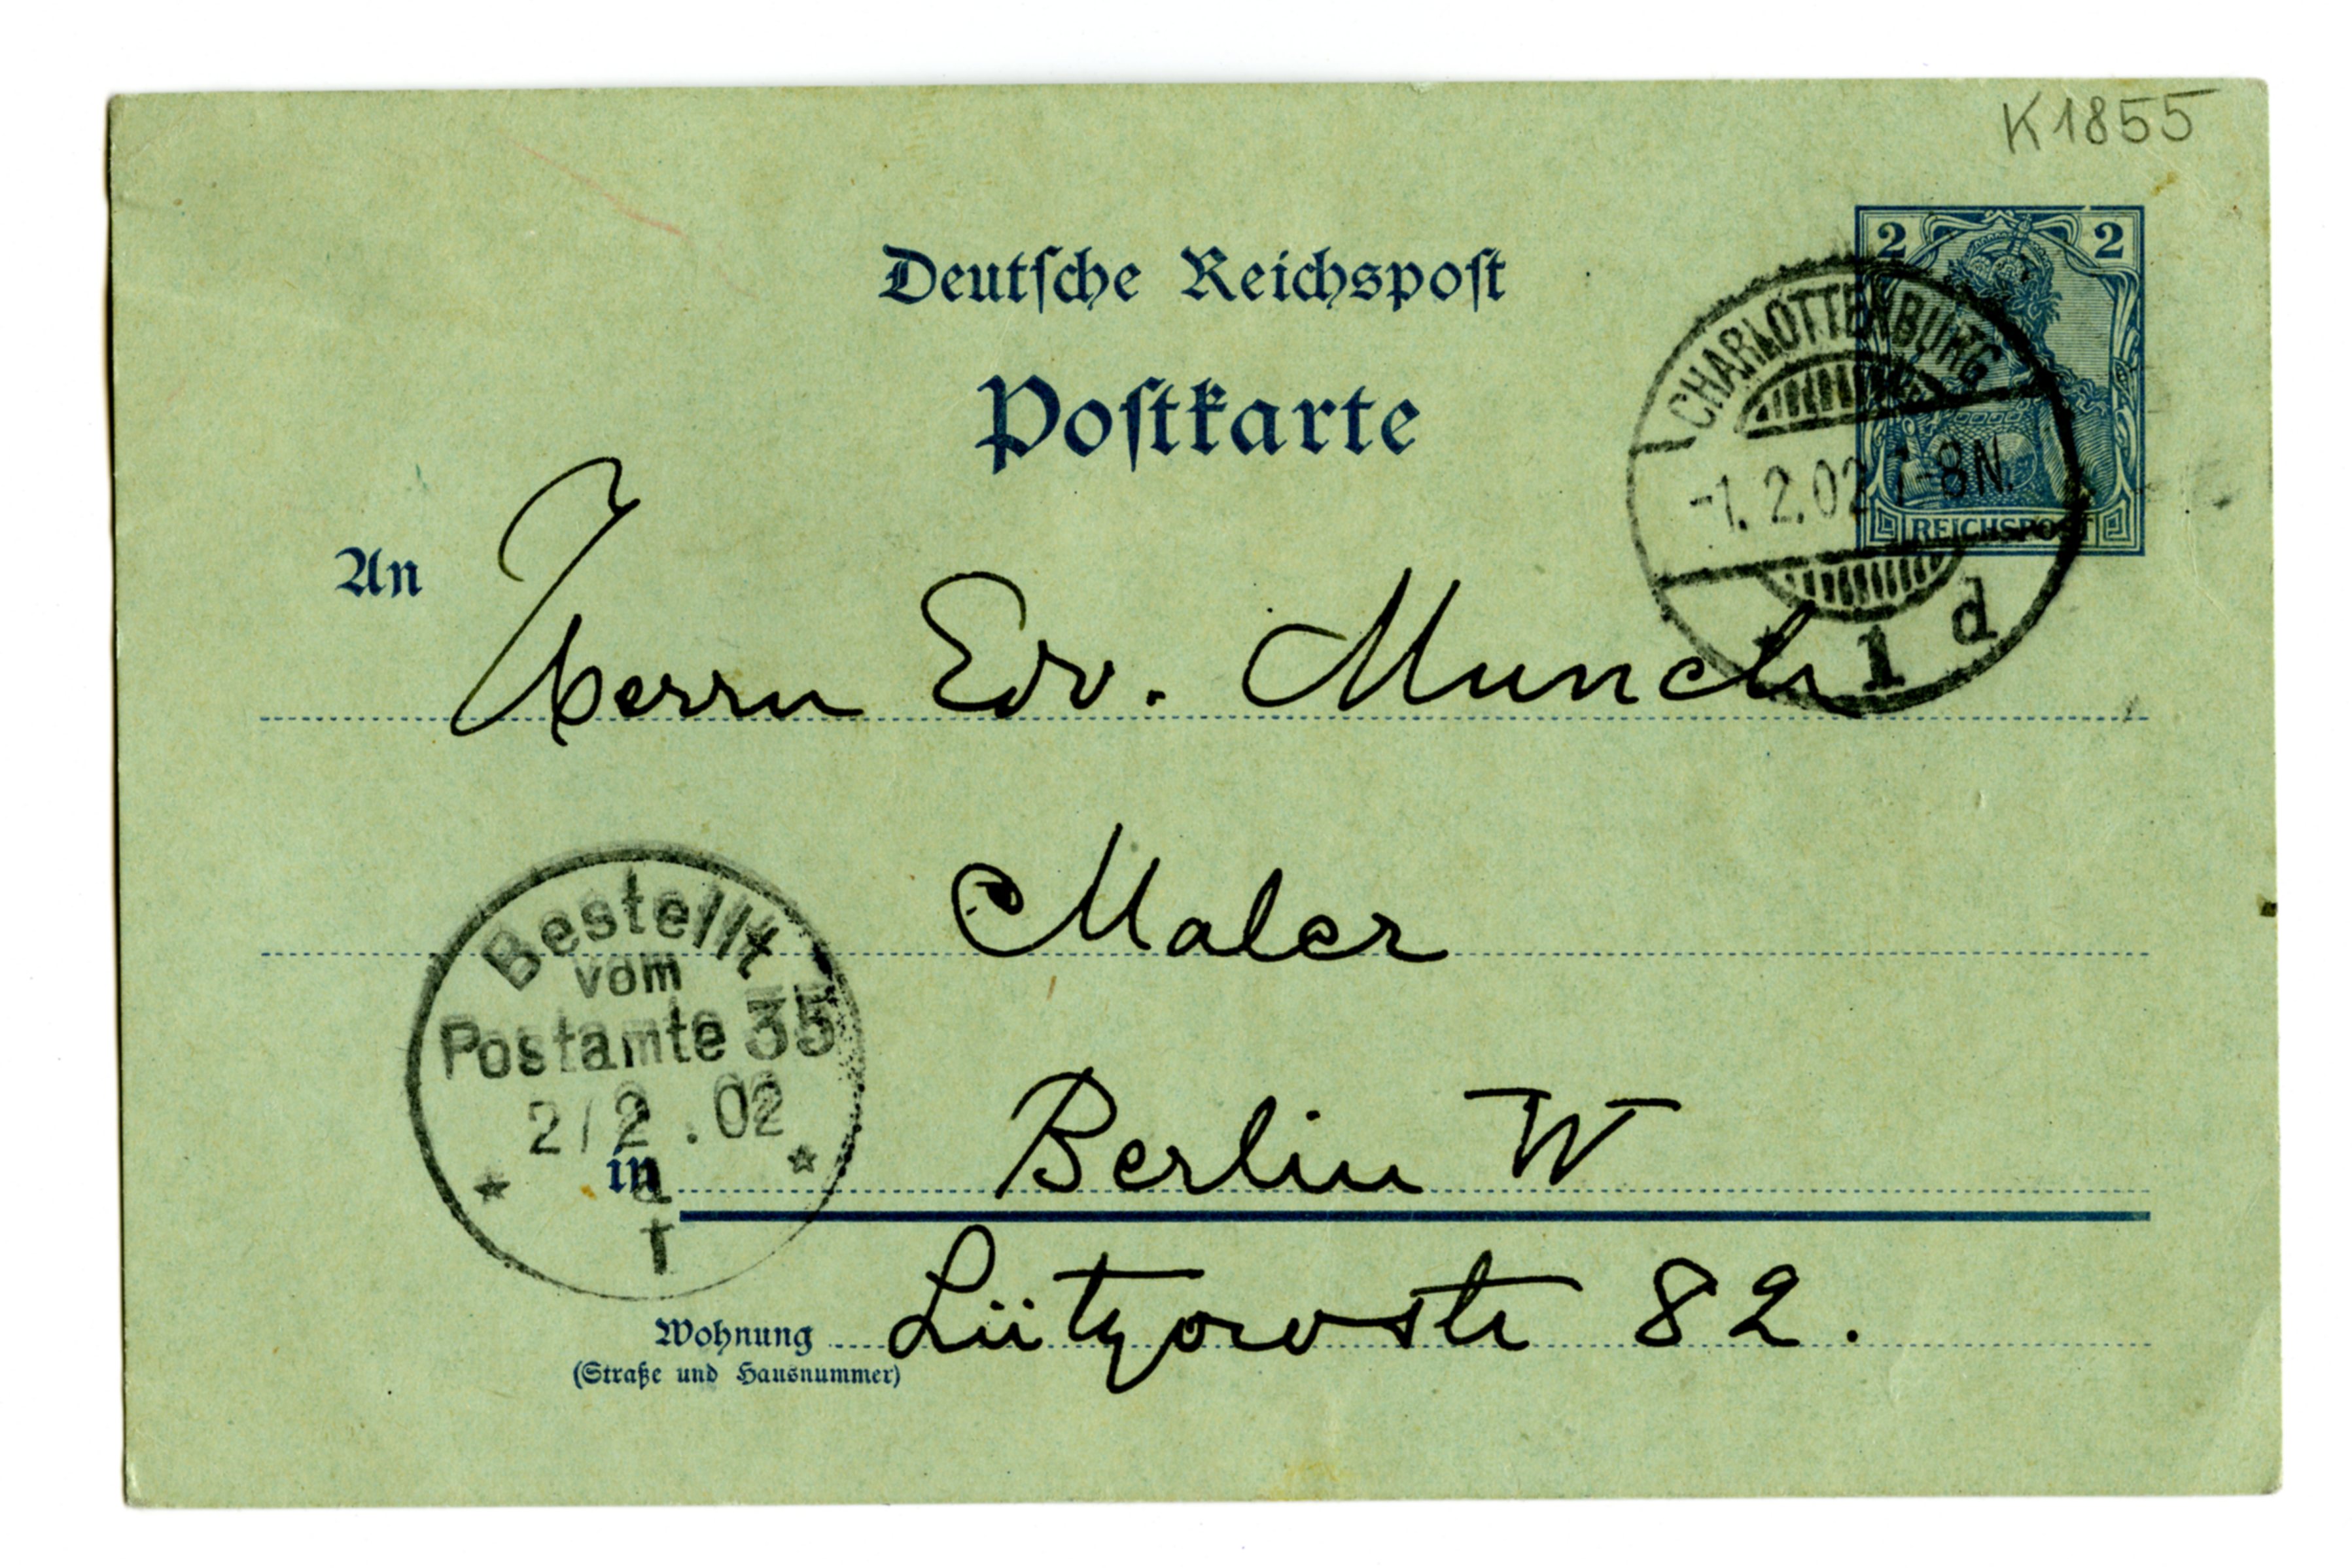 K1855
2 2
Deutsche Reichspost
Postkarte
CHARLOTTENBURG
-1.2.02 7-8N.
REICHSPOST
* 1 d
An Herrn Edv. Munch
Maler
Bestellt
vom
Postamte 35
2/2.02
in Berlin W
Lützowstr 82.
Wohnung
(Straße und Hausnummer)